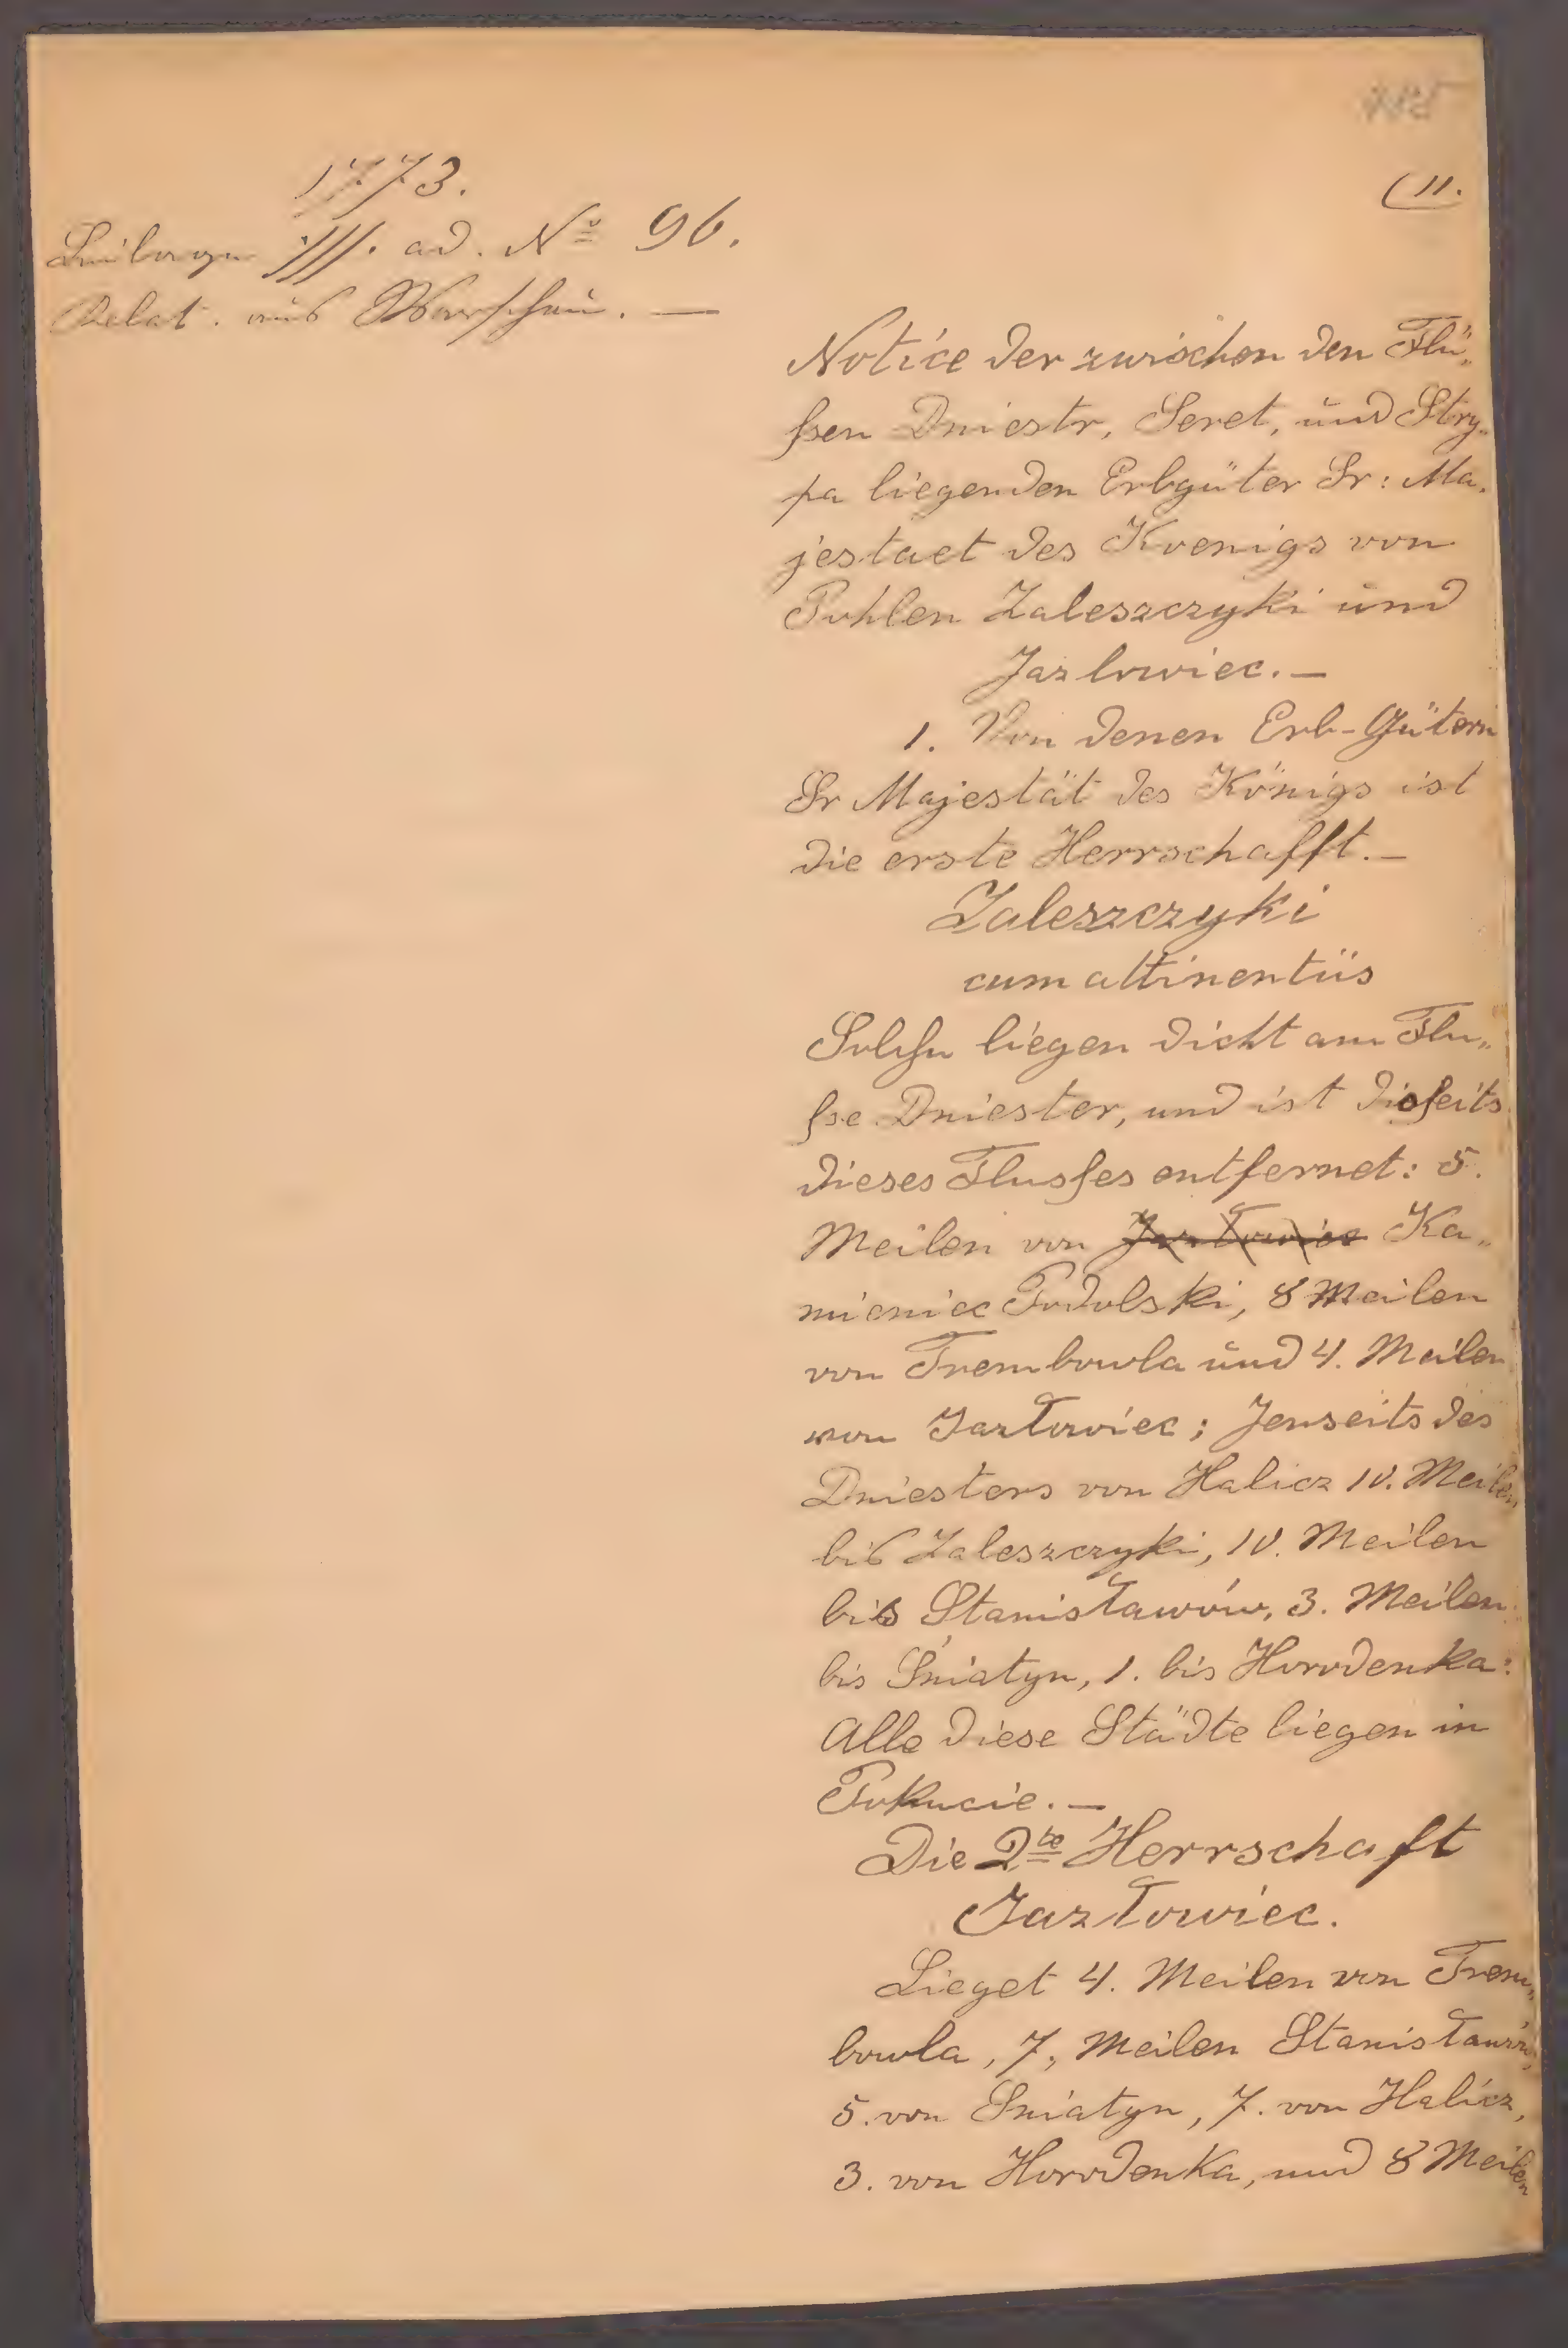 1773.
Beilage III. ad. Nº 96.
Relat. aus Warschau. —
(11.
Notice der zwischen den Flü„
ßen Dniestr, Seret, und Stry„
pa liegenden Erbgüter Sr: Ma„
jestaet des Koenigs von
Pohlen Zaleszczyki und
Jazlowiec. —
1. Von denen Erb-Gütern
Sr Majestät des Königs ist
die erste Herrschafft. —
Zaleszczyki
cum attinentiis
Solche liegen dicht am Flu„
ße Dniester, und ist dießeits
dieses Flusses entfernet: 5.
Meilen von Jazłowiec Ka„
mieniec Podolski, 8 Meilen
von Trembowla und 4. Meilen
von Jazłowiec; Jenseits des
Dniesters von Halicz 10. Meilen
bis Zaleszczyki, 10. Meilen
bis Stanisławów, 3. Meilen
bis Śniatyn, 1. bis Horodenka:
Alle diese Städte liegen in
Pokucie. —
Die 2te Herrschaft
Jazłowiec.
Lieget 4. Meilen von Trem„
bowla, 7, Meilen Stanisławów,
5. von Sniatyn, 7. von Halicz,
3. von Horodenka, und 8 Meilen